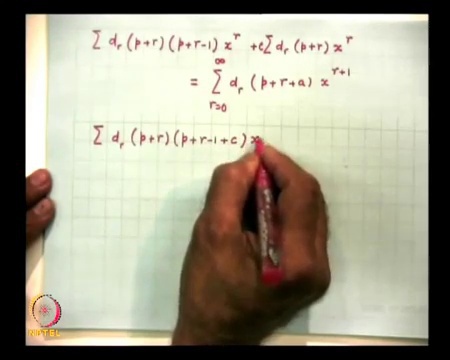 Σ d_r (p+r) (p+r-1) x^r + c Σ d_r (p+r) x^r
= Σ_{r=0}^{∞} d_r (p+r+a) x^{r+1}
Σ d_r (p+r) (p+r-1+c) x
NPTEL